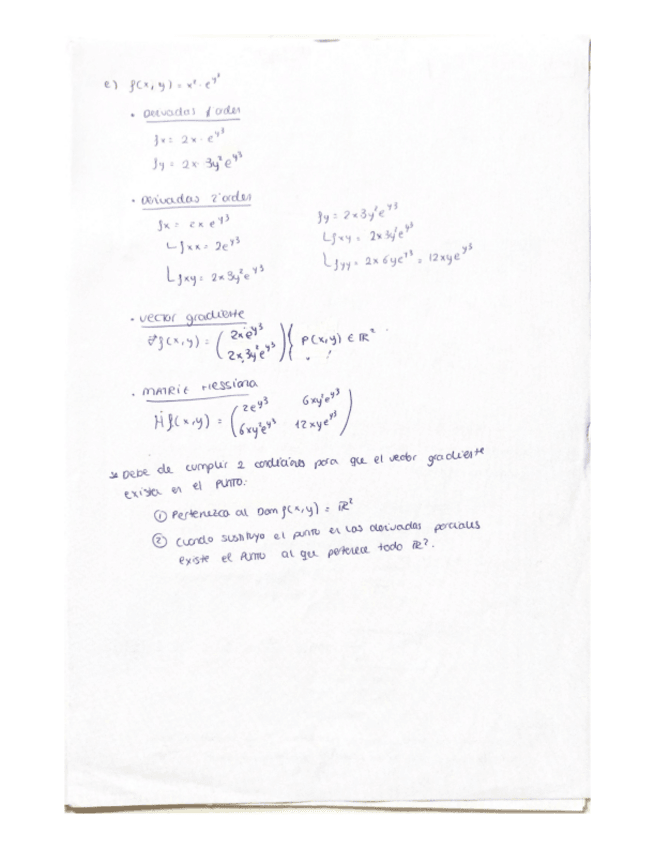 e) f(x,y) = x² · e^y³
• Derivadas 1'orden
fx = 2x · e^y³
fy = 2x · 3y² e^y³
• Derivadas 2'orden
fx = 2x e^y³
↳ fxx = 2e^y³
↳ fxy = 2x 3y² e^y³
fy = 2x 3y² e^y³
↳ fxy = 2x 3y² e^y³
↳ fyy = 2x 6y e^y³ = 12xy e^y³
• vector gradiente
∇f(x,y) = (2x e^y³
2x 3y² e^y³) { P(x,y) ∈ ℝ²
• MATRIZ HESSIANA
Hf(x,y) = (2e^y³ 6xy² e^y³
6xy² e^y³ 12xy e^y³)
* Debe de cumplir 2 condiciones para que el vector gradiente
exista en el PUNTO:
① Pertenezca al Dom f(x,y) = ℝ²
② Cuando sustituyo el punto en las derivadas parciales
existe el PUNTO al que pertenece todo ℝ².